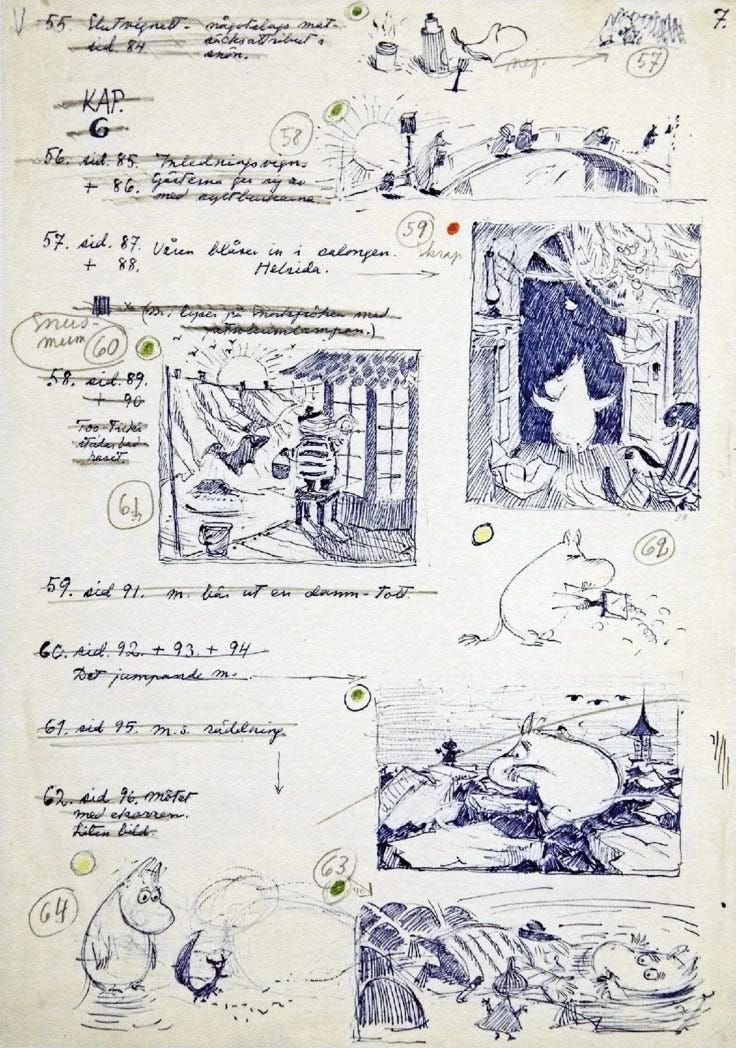 V 55. Slutvignett - någotslags mat- 7.
sid. 84 säcksattribut i
snön.
nej.
57
KAP.
6
58
56. sid. 85. Inledningsvign.
+ 86. Gästerna ger sig av
med syltburkarna
59
skrap
57. sid. 87. Våren blåser in i salongen.
+ 88. Helsida.
* (M. lyser på
med
Snus-
mum
60
58. sid. 89.
+ 90
Too-Ticki
städar bad
huset.
61
62
59. sid 91. m. bär ut en damm-tott.
60. sid. 92. + 93. + 94
Det jumpande m.
61. sid 95. m.s. räddning
62. sid 96. mötet
med ekorren.
Liten bild
63
64